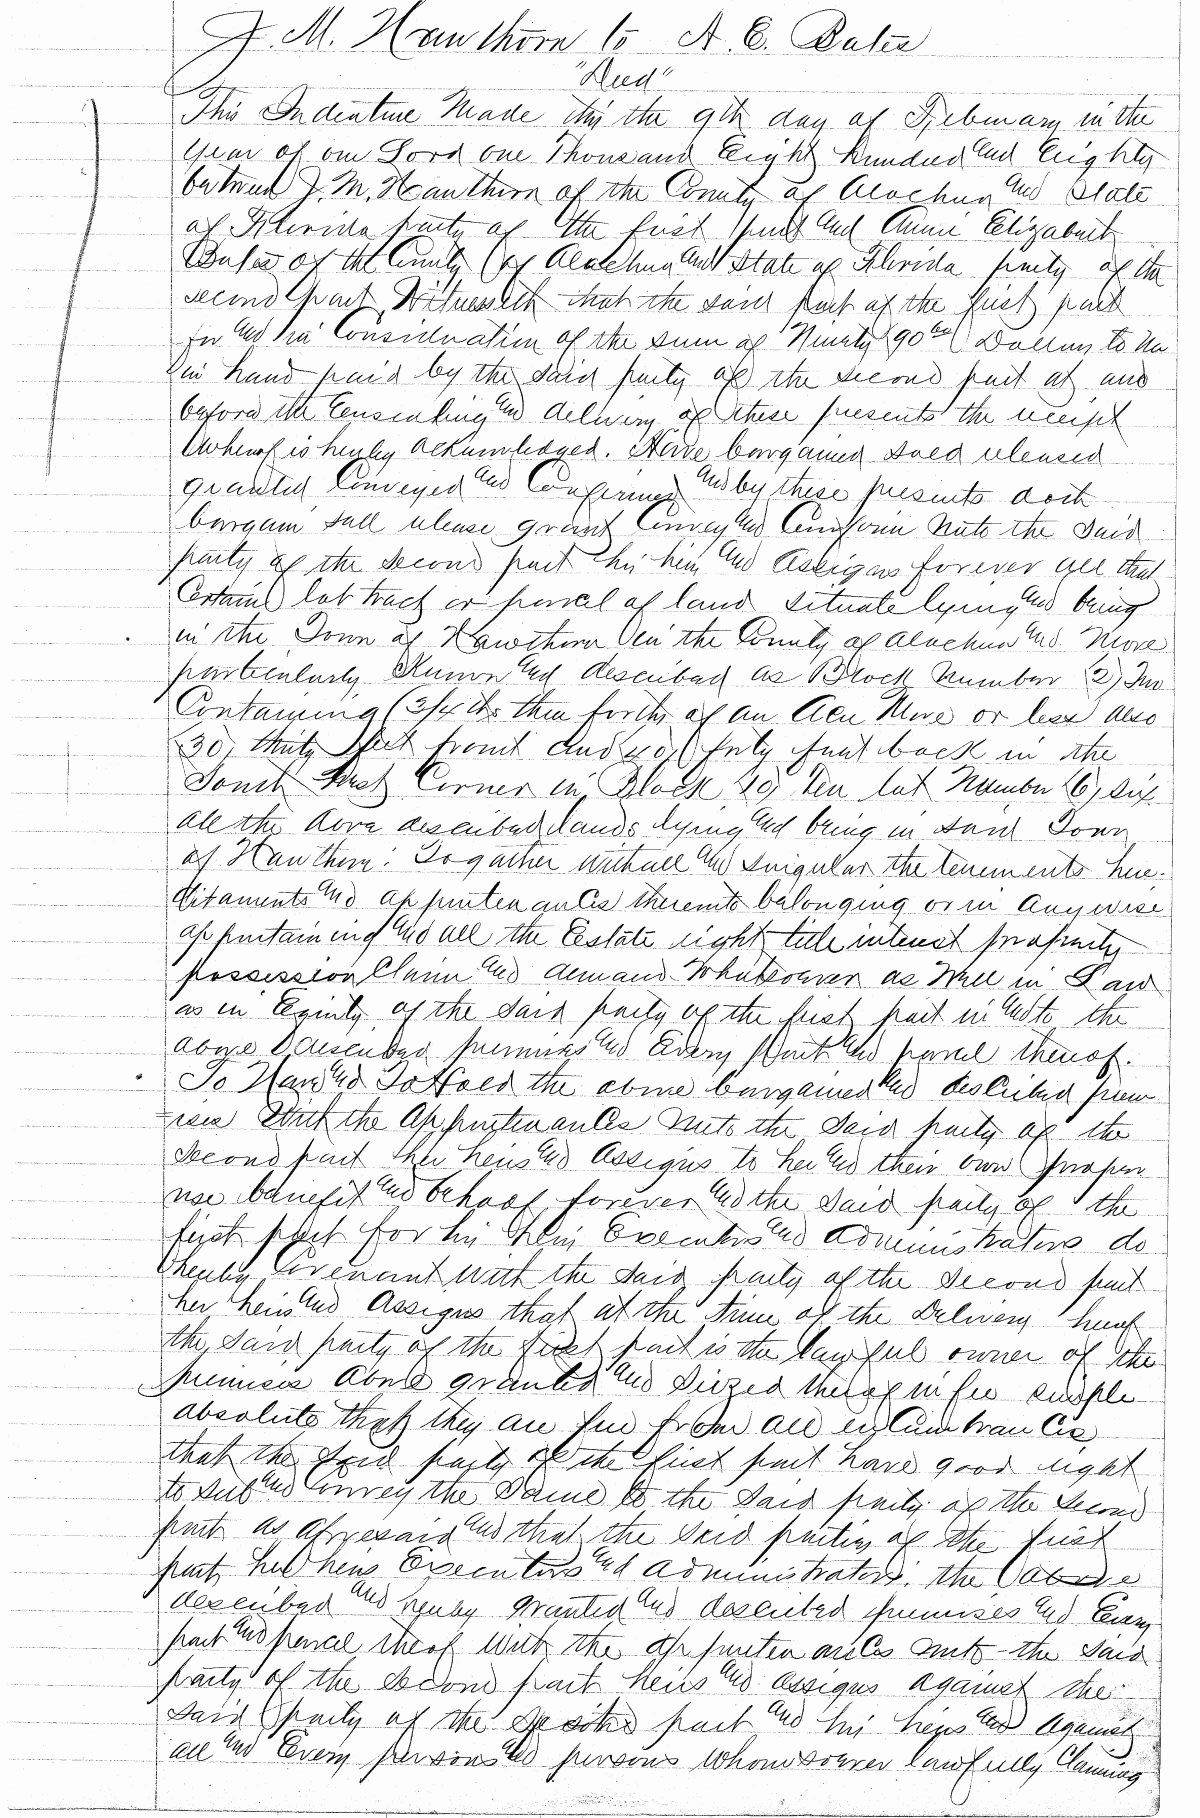 J. M. Hawthorn to A. E. Bates
"Deed"
This Indenture Made this the 9th day of Febuary in the
year of our Lord one Thousand Eight Hundred and Eighty
between J. M. Hawthorn of the County of Alachua and State
of Florida party of the first part and Annie Elizabeth
Bates of the County of Alachua and State of Florida party of the
second part, Witnesseth that the said part of the first part
for and in Consideration of the sum of Ninety 90 Dollars to
in hand paid by the said party of the second part at and
before the Ensealing and delivery of these presents the receipt
whereof is hereby acknowledged. Have bargained sold released
granted Conveyed and Confirmed and by these presents doth
bargain sell release grant Convey and Confirm unto the said
party of the second part his heirs and Assigns forever all that
Certain lot tract or parcel of land situate lying and being
in the Town of Hawthorn in the County of Alachua and More
particularly Known and described as Block Number (2) Two
Containing (3/4 ths three forths of an Acre More or less also
(30) thirty feet front and (40) forty feet back in the
South East Corner in Block (10) Ten lot Number (6) six
all the above described lands lying and being in said Town
of Hawthorn: Together with all and singular the tenements here-
ditaments and appurtenances thereunto belonging or in anywise
appurtaining and all the Estate right title interest property
possession Claim and demand Whatsoever as Well in Law
as in Equity of the said party of the first part in and to the
above described premises and Every part and parcel thereof.
To Have and To Hold the above bargained and described prem
ises With the Appurtenances unto the Said party of the
second part her heirs and Assigns to her and their own proper
use benefit and behoof forever and the said party of the
first part for his heirs Executors and Administrators do
hereby Covenant with the said party of the second part
her heirs and Assigns that at the time of the Delivery hereof
the said party of the first part is the lawful owner of the
premises Above granted and Siezed thereof in fee simple
absolute that they are free from all encumbrances
that the said party of the first part have good right
to sell and Convey the Same to the said party of the second
part as Aforesaid and that the said parties of the first
part, her heirs Executors and Administrators, the above
described and hereby granted and described premises and Every
part and parcel therof With the appurtenances unto the said
party of the second part heirs and assigns against the
said party of the part and his heirs and Against
all and Every persons and persons Whomsoever lawfully Claiming